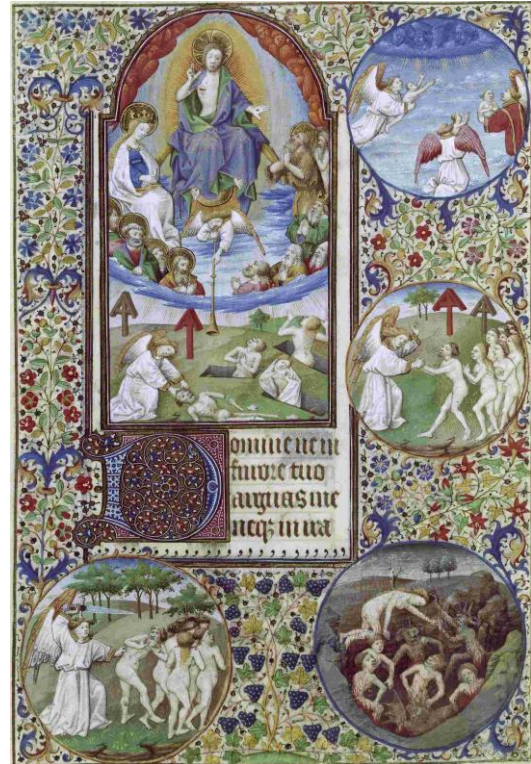 Domine ne in
furore tuo
arguas me
neq; in ira